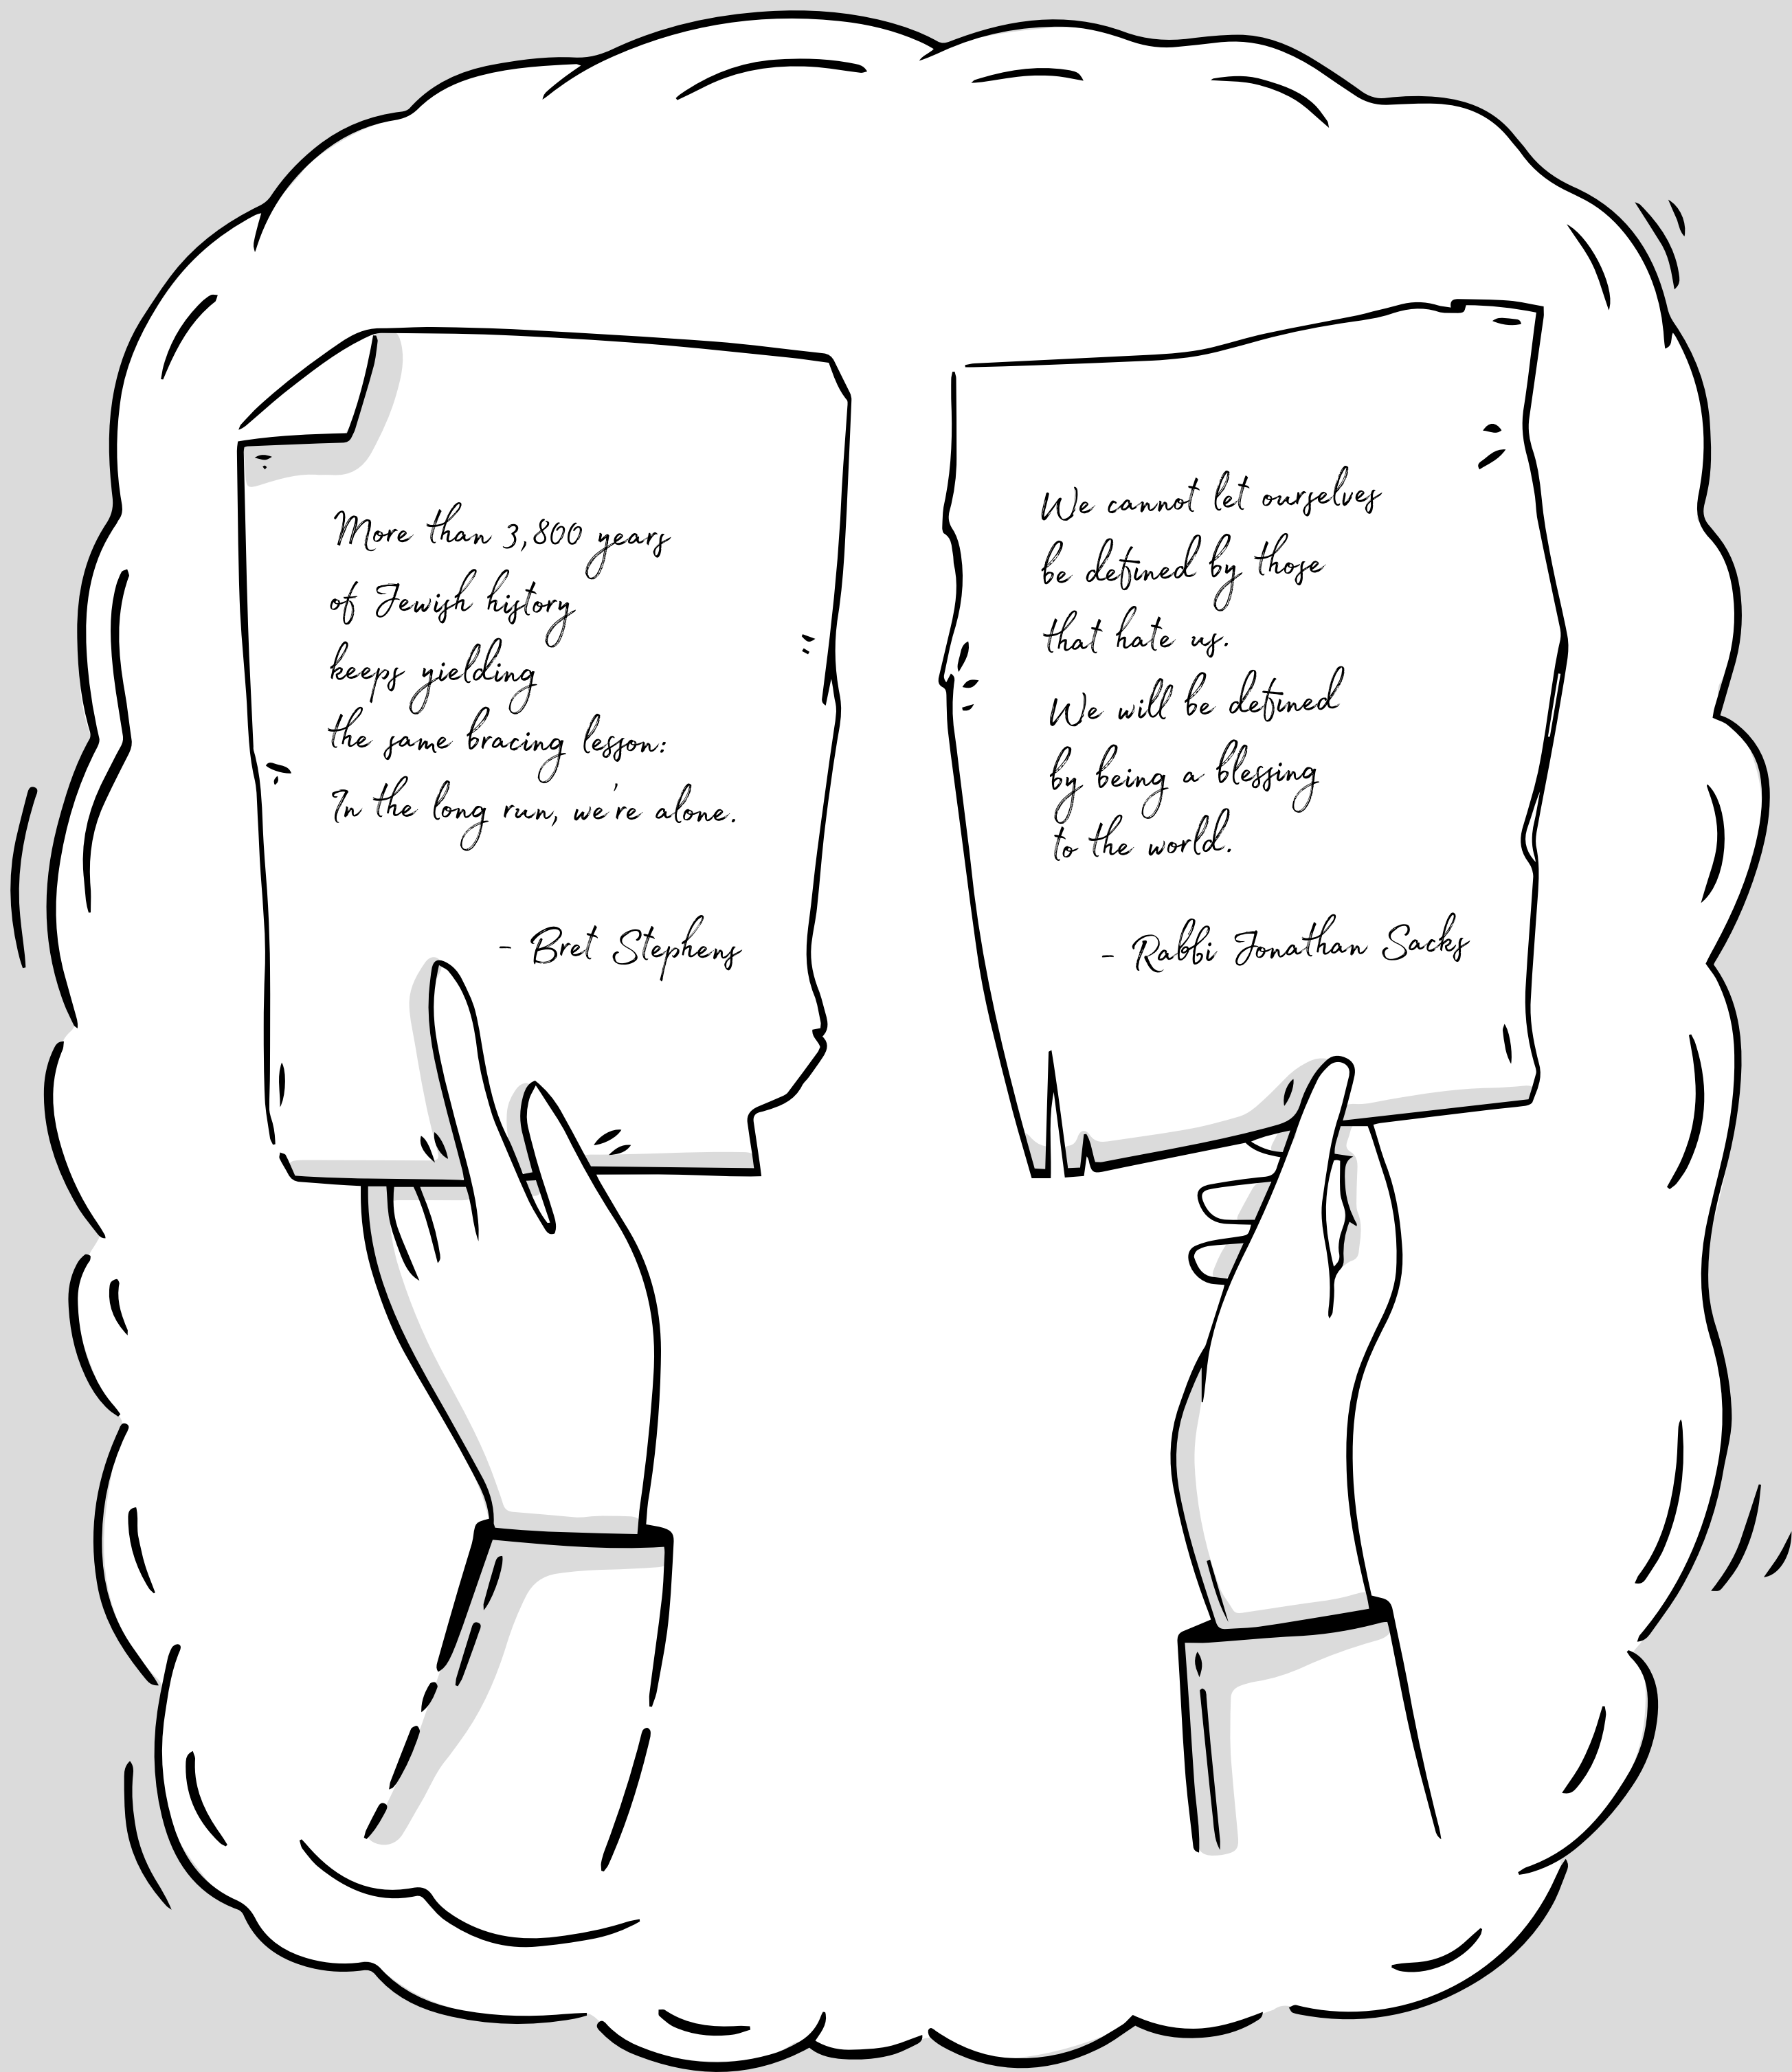 More than 3,800 years
of Jewish history
keeps yielding
the same bracing lesson:
In the long run, we're alone.
- Bret Stephens
We cannot let ourselves
be defined by those
that hate us.
We will be defined
by being a blessing
to the world.
- Rabbi Jonathan Sacks